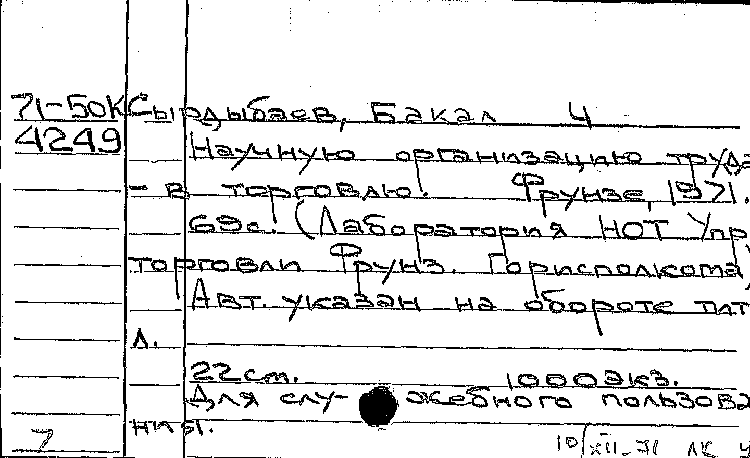 71-50К Сырдыбаев, Бакал 4
4249
Научную организацию труда
- в торговлю! Фрунзе, 1971.
69с. (Лаборатория НОТ Упр
торговли Фрунз. Горисполкома)
Авт. указан на обороте тит
л.
22 см. 1000 экз.
Для слу- жебного пользова
ния.
7
10/XII-71 ЛК